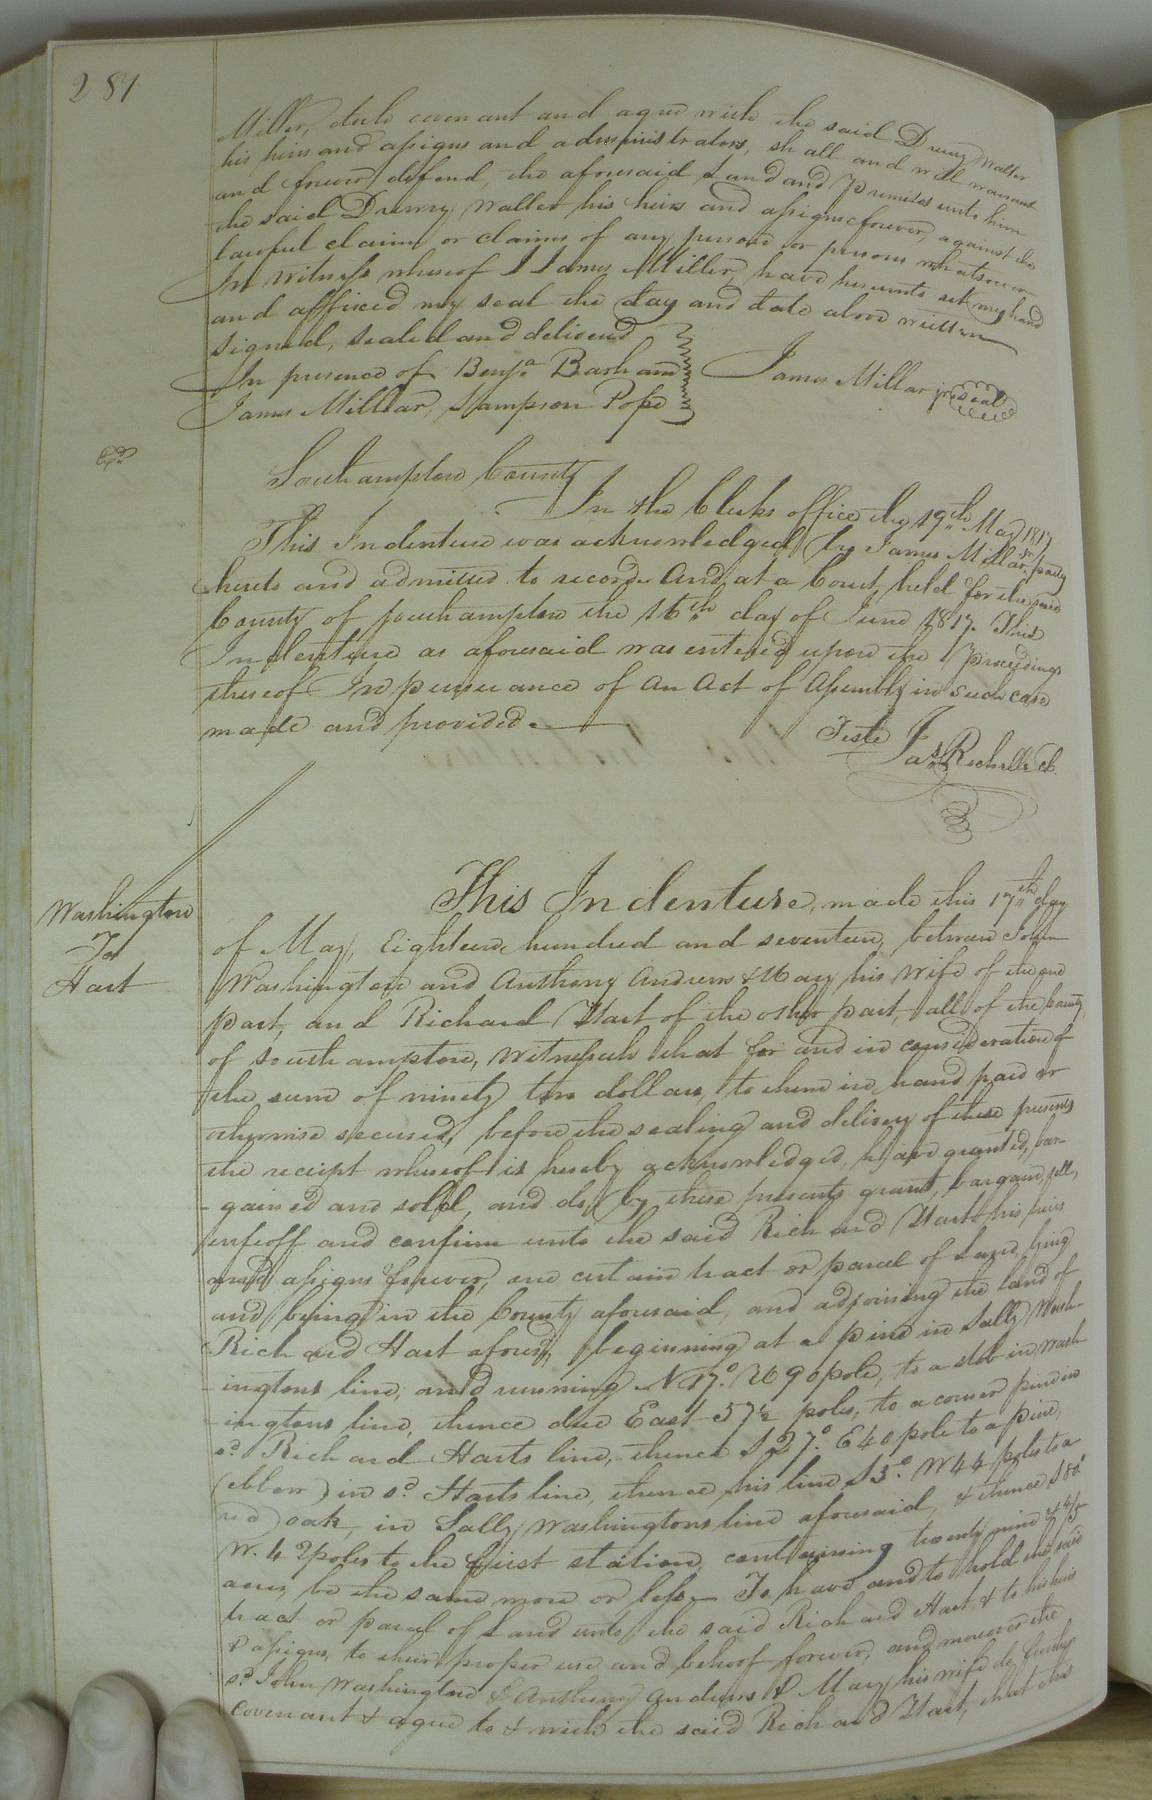 281
Miller, doth covenant and agree with the said Drewry Waller
his heirs and assigns and administrators, shall and will warrant
and forever defend, the aforesaid Land and Premises unto him
the said Drewry Waller his heirs and assigns forever, against the
lawful claim or claims of any person or persons whatsoever
In witness whereof I James Miller, have hereunto set my hand
and affixed my seal the day and date above written
Signed, sealed and delivered
In presence of Benja. Barham
James Millar, Sampson Pope
James Millar jr. seal
Southampton County
In the Clerks office the 19th May 1817
This Indenture was acknowledged by James Millar jr. party
hereto and admitted to record And at a Court held for the said
County of Southampton the 16th day of June 1817. This
Indenture as aforesaid was entered upon the Proceedings
thereof In pursuance of An Act of Assembly in such case
made and provided.
Teste Jas. Rochelle cl.
Washington
To
Hart
This Indenture, made this 17th day
of May, Eighteen hundred and seventeen, between John
Washington and Anthony Andrews & Mary his wife of the one
part, and Richard Hart of the other part, all of the county
of Southampton, Witnesseth that for and in consideration of
the sum of ninety two dollars, to them in hand paid or
otherwise secured, before the sealing and delivery of these presents
the receipt whereof is hereby acknowledged, have granted, bar-
-gained and sold, and do, by these presents grant, bargain, sell,
enfeoff and confirm unto the said Richard Hart his heirs
and assigns forever, one certain tract or parcel of Land, lying
and being in the County aforesaid, and adjoining the land of
Richard Hart aforesd, beginning at a pine in Sally Wash-
-ingtons line, and running N 17.° W 90 pole, to a stob in Wash-
-ingtons line, thence due East 57½ poles, to a corner pine in
sd. Richard Harts line, thence S 27.° E 40 pole to a pine,
in sd. Harts line, thence his line S 3.° W 44 poles to a
red oak, in Sally Washingtons line aforesaid, & thence S 80.°
W. 42 poles to the first station, containing twenty nine & 4/5
acres, be the same more or less. To have and to hold the said
tract or parcel of Land unto the said Richard Hart & to his heirs
& assigns, to their proper use and behoof forever, and moreover the
sd. John Washington & Anthony Andrews & Mary his wife do hereby
covenant & agree to & with the said Richard Hart, that the